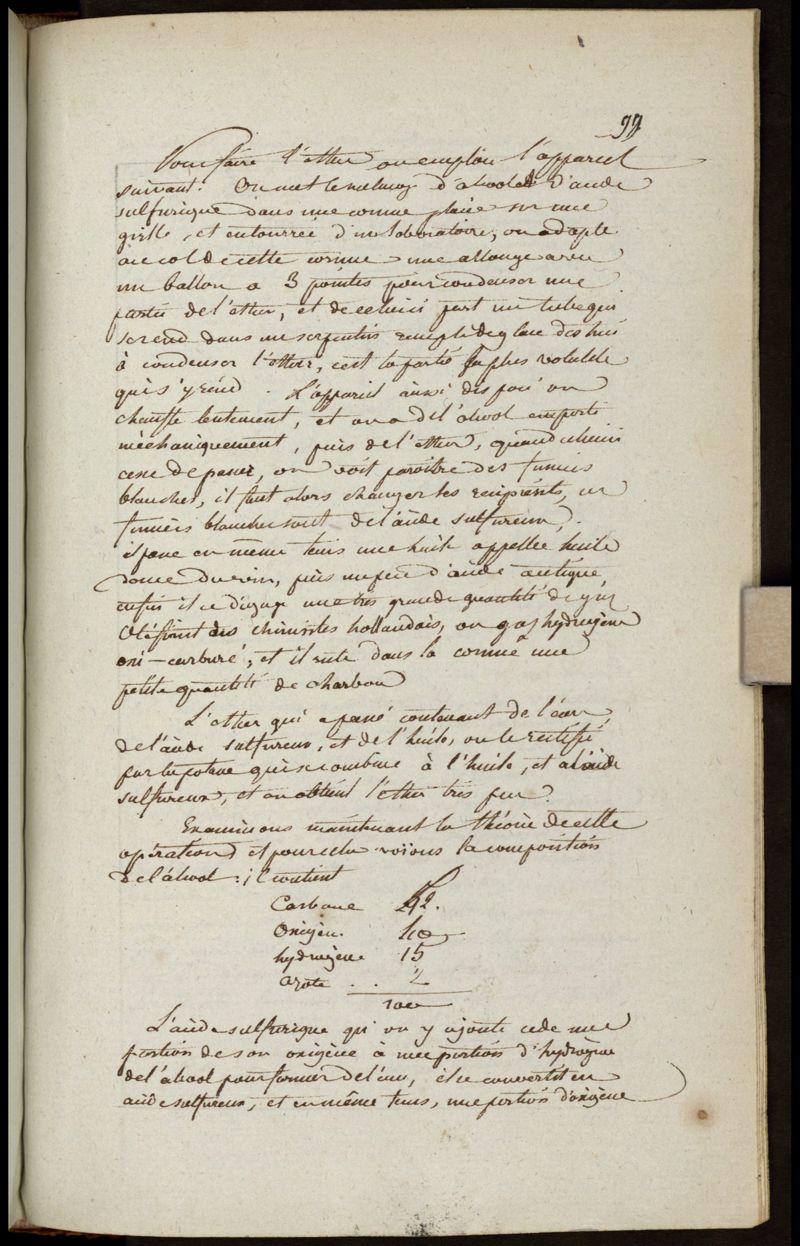 99
Pour faire l'ether on emploie l'appareil
suivant: On met le melange d'alcool et d'acide
sulfurique dans une cornue placée sur une
grille, et entourrée d'un laboratoire, on adapte
au col de cette cornue une allonge avec
un ballon a 3 pointes pour condenser une
partie de l'ether, et de celui ci part un tube qui
se rend dans un serpentin rempli de glace destiné
à condenser l'ether, c'est la partie la plus volatile
qui s'y rend. L'appareil ainsi disposé on
chauffe lentement, et on a de l'alcool emporté
méchaniquement, puis de l'ether, quand celui ci
cesse de passer, on voit paroître des fumées
blanches, il faut alors changer les recipients, ces
fumées blanches sont de l'acide sulfureux,
il passe en même tems une huile appellée huile
douce du vin, puis un peu d'acide acétique,
enfin il se dégage une très grande quantité de gaz
oléfiant des chimistes hollandais, ou gaz hydrogène
oxi-carburé, et il reste dans la cornue une
petite quantité de charbon
L'ether qui a passé contenant de l'eau,
de l'acide sulfureux, et de l'huile, on le rectifie
par la potasse qui se combine à l'huile, et à l'acide
sulfureux, et on obtient l'ether très pur.
Examinons maintenant la théorie de cette
opération, et pour cela voïons la composition
de l'alcool: il contient
Carbone 42.
Oxigène. 40
hydrogène 15
azote . . 2
100
L'acide sulfurique qu'on y ajoute cede une
portion de son oxigène à une portion d'hydrogène
de l'alcool pour former de l'eau, il se convertit en
acide sulfureux, et en même tems, une portion d'oxigène